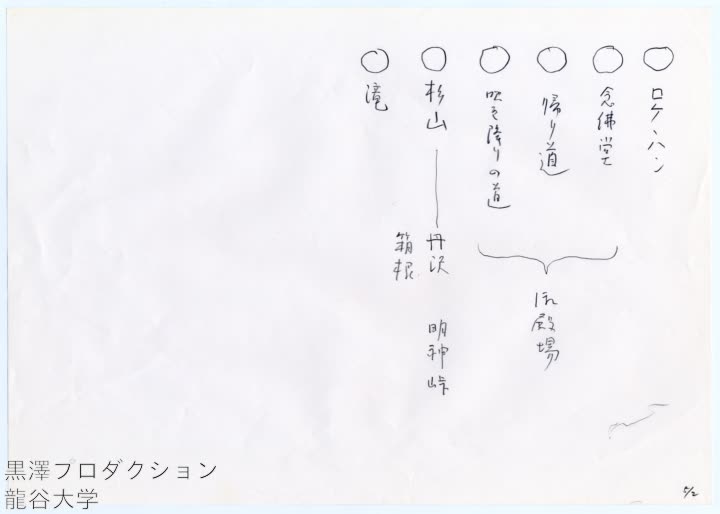 ○ ロケハン
○ 念佛堂
○ 帰り道
○ 吹き降りの道
御殿場
○ 杉山 ― 丹沢 明神峠
箱根
○ 滝
黒澤プロダクション
龍谷大学